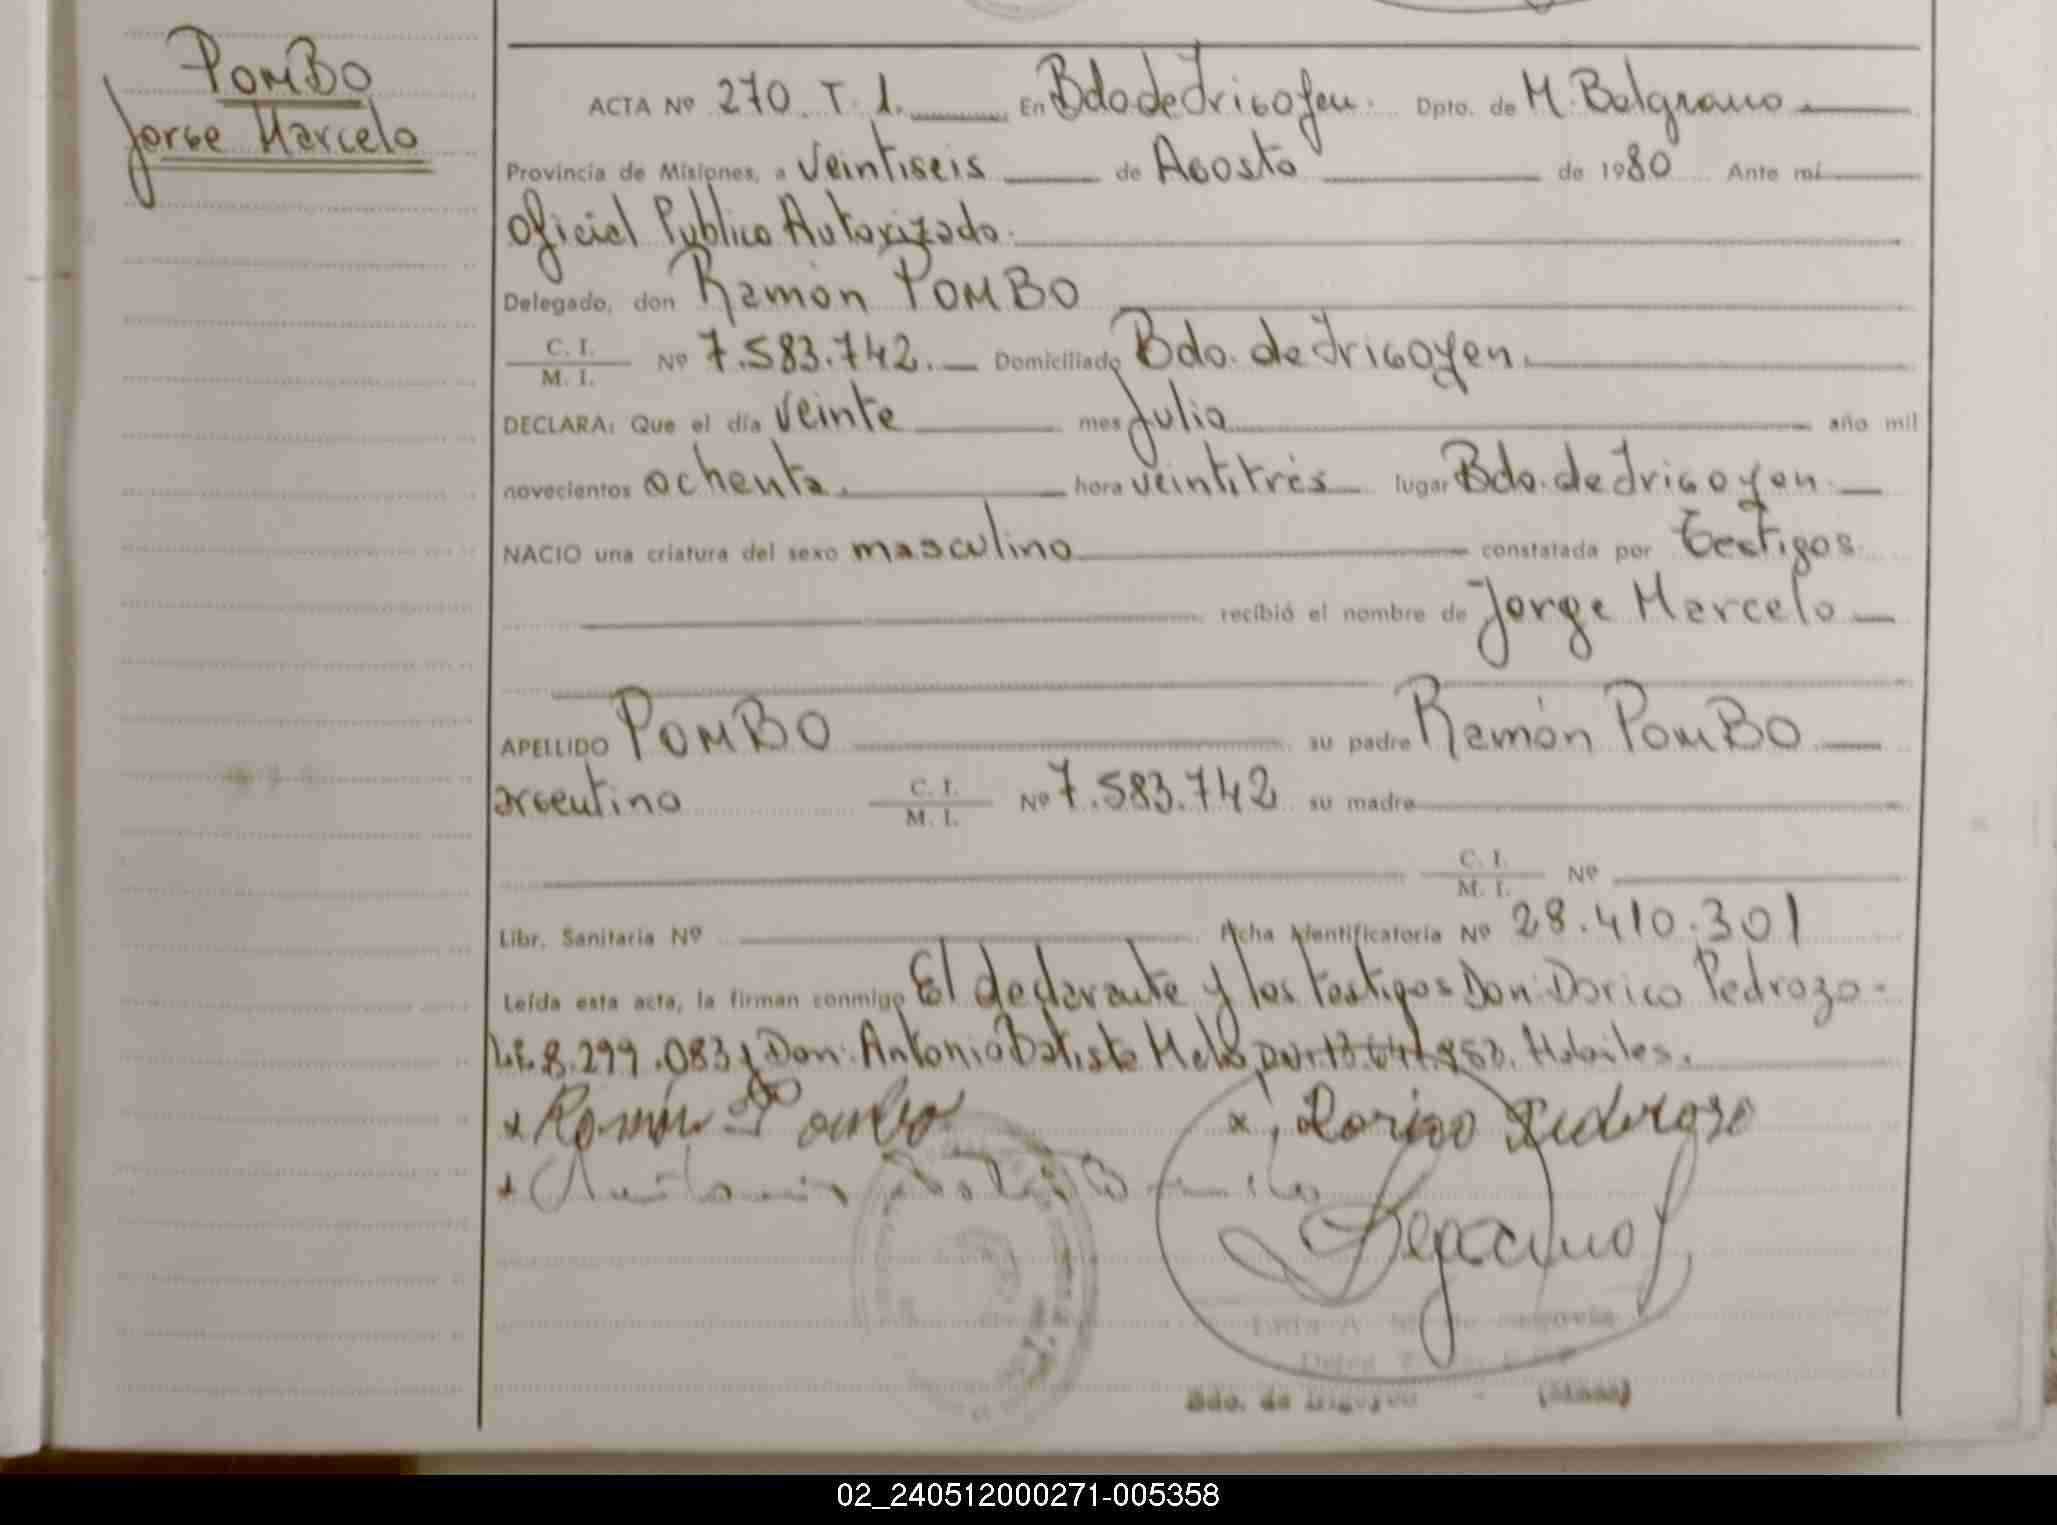 POMBO
Jorge Marcelo
ACTA Nº 270. T. 1. En Bdo de Irigoyen. Dpto. de M. Belgrano
Provincia de Misiones, a veintiseis de Agosto de 1980 Ante mí
Oficial Publico Autorizado.
Delegado, don Ramón POMBO
C. I.
M. I. Nº 7.583.742. Domiciliado Bdo. de Irigoyen.
DECLARA: Que el día veinte mes Julio año mil
novecientos ochenta. hora veintitrés lugar Bdo. de Irigoyen.
NACIO una criatura del sexo masculino constatada por testigos.
recibió el nombre de Jorge Marcelo
APELLIDO POMBO su padre Ramón POMBO
argentino C. I. M. I. Nº 7.583.742 su madre
C. I. M. I. Nº
Libr. Sanitaria Nº Ficha Identificatoria Nº 28.410.301
Leída esta acta, la firman conmigo El declarante y los testigos Don: Dorico Pedrozo-
L.E. 8.299.083 y Don: Antonio Batista Hábiles.
x Ramón Pombo x Dorico Pedrozo
x Antonio
Bdo. de Irigoyen - (Mnes)
02_240512000271-005358